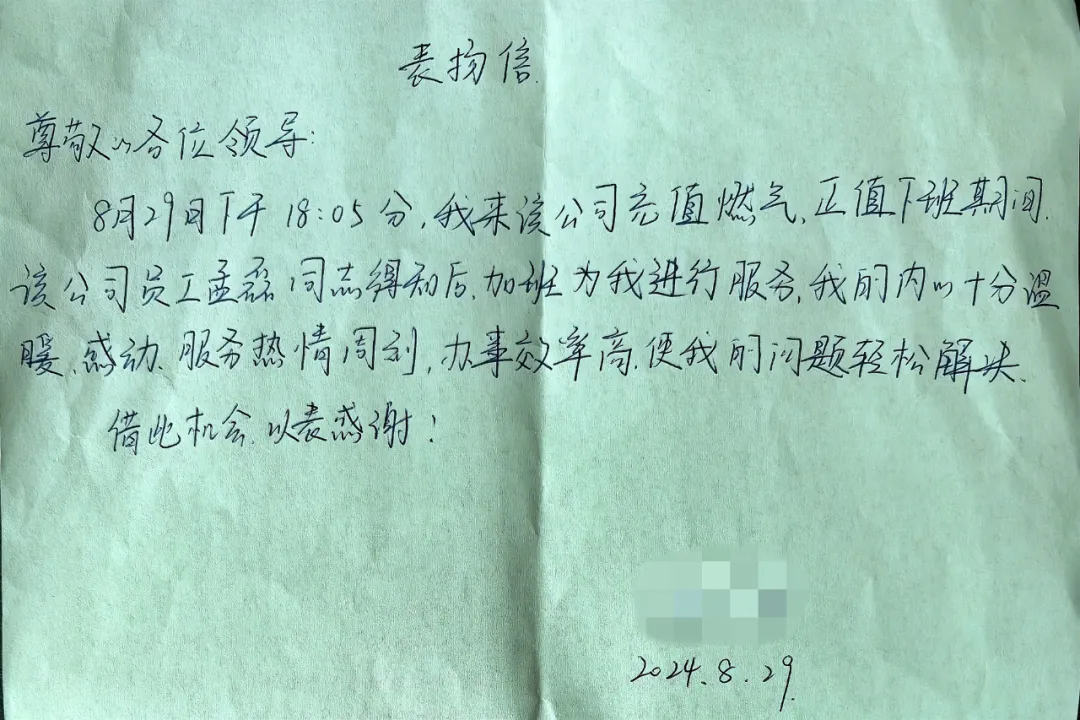 表扬信.
尊敬的各位领导:
8月29日下午18:05分,我来该公司充值燃气,正值下班期间.
该公司员工孟磊同志得知后,加班为我进行服务,我的内心十分温
暖、感动.服务热情周到,办事效率高,使我的问题轻松解决.
借此机会,以表感谢!
2024.8.29.